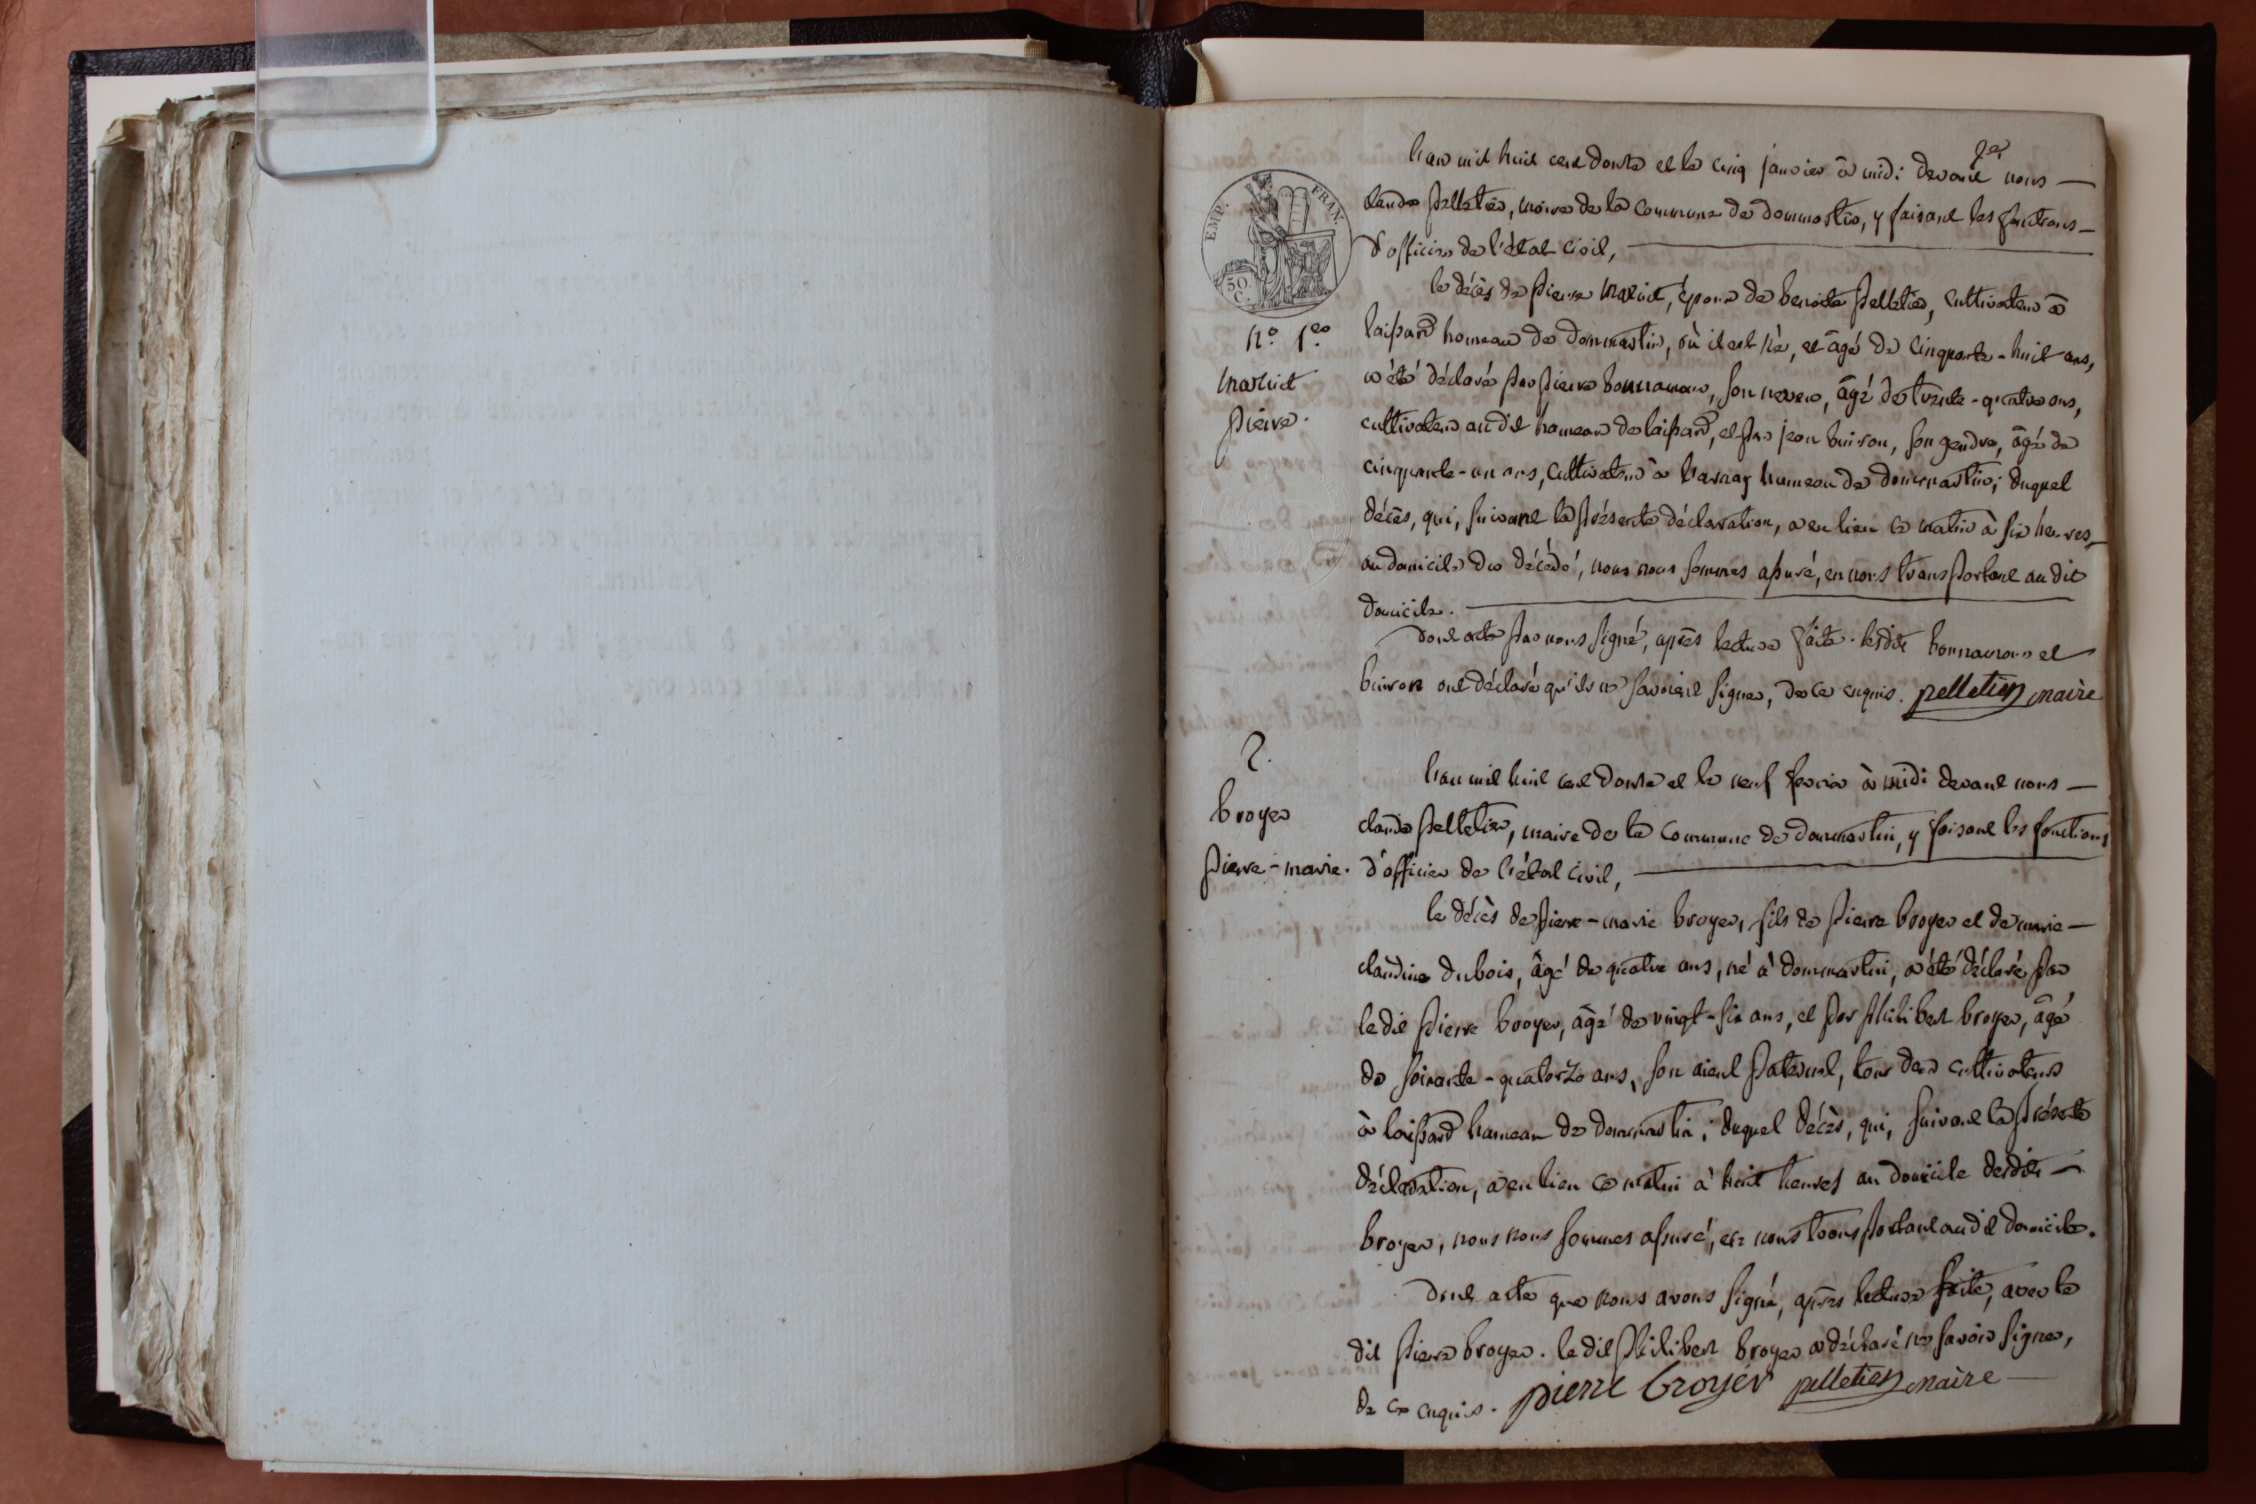 1er
L'an mil huit cent douze et le cinq janvier à midi devant nous —
claude pelletier, maire de la commune de dommartin, y faisant les fonctions —
d'officier de l'état civil,
EMP. FRAN.
50 C.
le décès de pierre Maruit, époux de benoite pelletier, cultivateur à
N.o 1.er
Maruit
pierre.
laissard hameau de dommartin, où il est né, et âgé de cinquante-huit ans,
a été déclaré par pierre bonnamour, son neveu, âgé de trente-quatre ans,
cultivateur audit hameau de laissard, et par jean buiron, son gendre, âgé de
cinquante-un ans, cultivateur à barnay hameau de dommartin; duquel
décès, qui, suivant la présente déclaration, a eu lieu ce matin à six heures,
au domicile du décédé, nous nous sommes assuré, en nous transportant au dit
domicile.
dont acte par nous signé, après lecture faite. lesdits bonnamour et
buiron ont déclaré qu'ils ne savoient signer, de ce enquis. pelletier maire
2.
broyer
pierre-marie.
L'an mil huit cent douze et le neuf fevrier à midi devant nous —
claude pelletier, maire de la commune de dommartin, y faisant les fonctions
d'officier de l'état civil,
le décès de pierre-marie broyer, fils de pierre broyer et de marie —
claudine dubois, âgé de quatre ans, né à dommartin, a été déclaré par
le dit pierre broyer, âgé de vingt-six ans, et par philibert broyer, âgé
de soixante-quatorze ans, son aieul paternel, tous deux cultivateurs
à laissard hameau de dommartin; duquel décès, qui, suivant la présente
déclaration, a eu lieu ce matin à huit heures au domicile desdits —
broyer, nous nous sommes assuré, en nous transportant audit domicile.
dont acte que nous avons signé, après lecture faite, avec le
dit pierre broyer. le dit philibert broyer a déclaré ne savoir signer,
de ce enquis. pierre broyer pelletier maire —